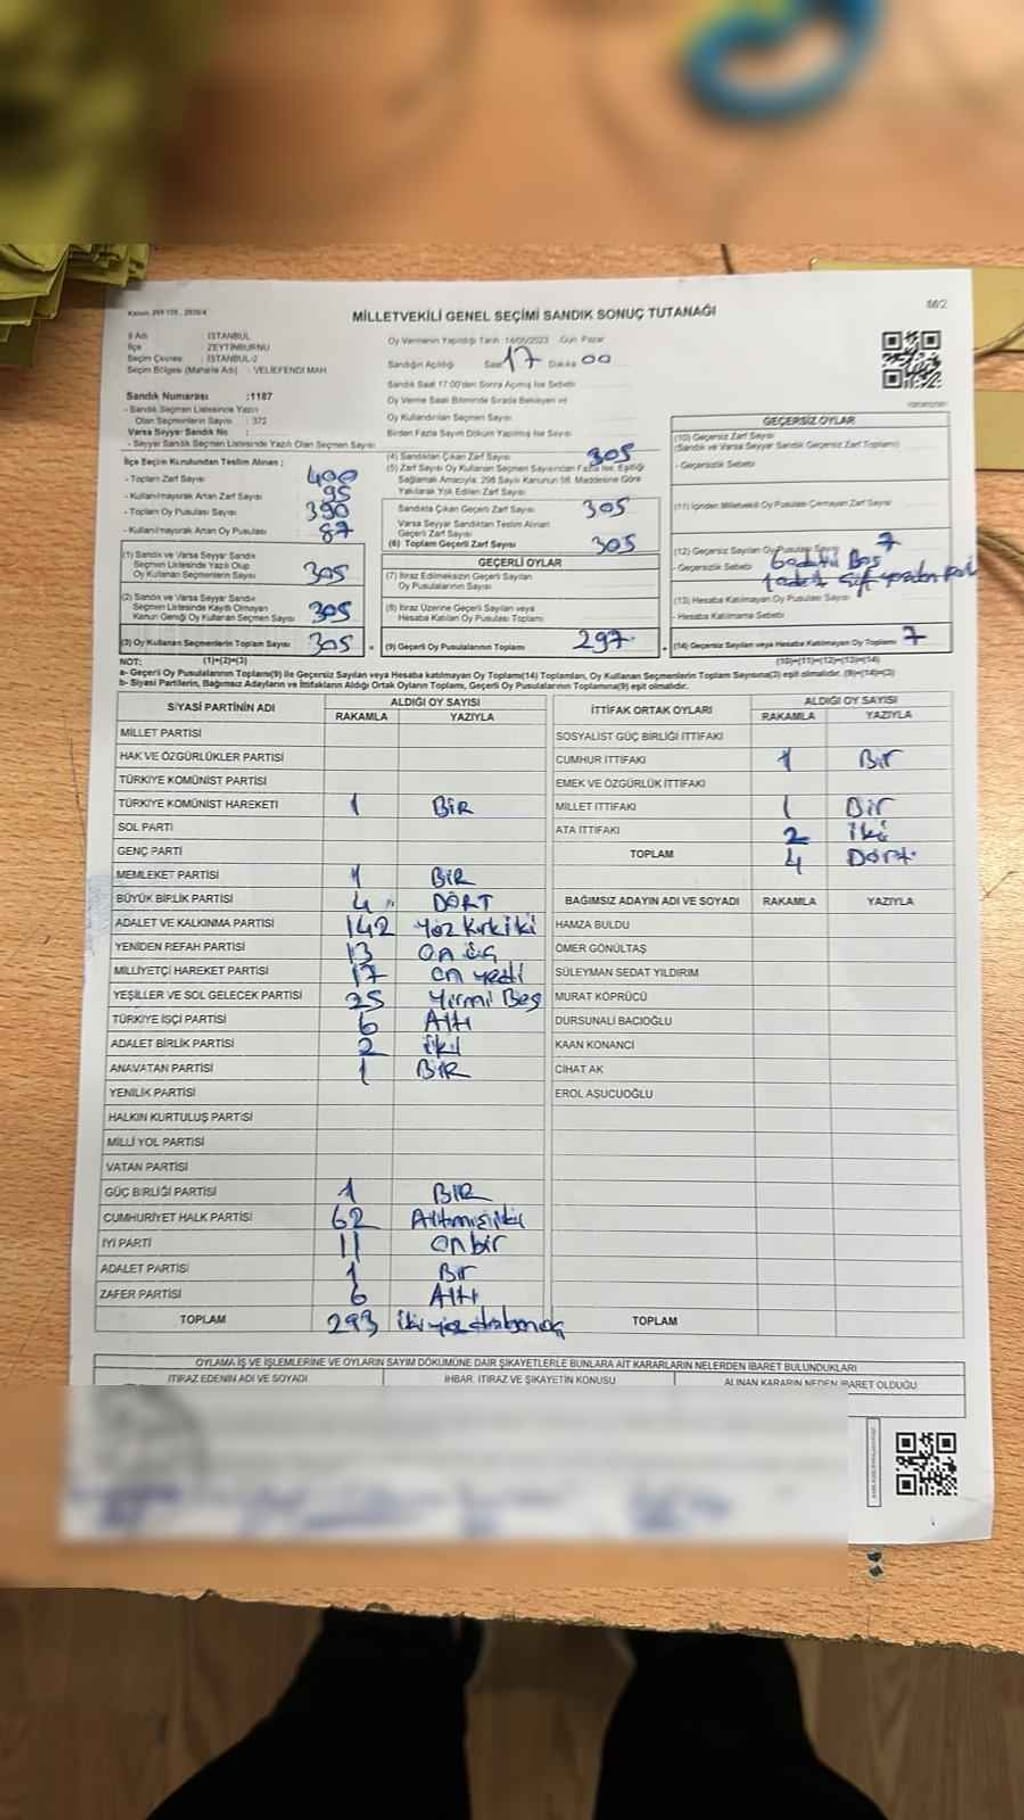 MİLLETVEKİLİ GENEL SEÇİMİ SANDIK SONUÇ TUTANAĞI
İl Adı : İSTANBUL
İlçe : ZEYTİNBURNU
Seçim Çevresi : İSTANBUL-2
Seçim Bölgesi (Mahalle Adı) : VELİEFENDİ MAH.
Oy Vermenin Yapıldığı Tarih : 14/05/2023 Gün Pazar
Sandığın Açıldığı Saat 17 Dakika 00
Sandık Saat 17:00'den Sonra Açılmış İse Sebebi
Oy Verme Saati Bitiminde Sırada Bekleyen ve
Oy Kullandırılan Seçmen Sayısı
Birden Fazla Sayım Döküm Yapılmış İse Sayısı
Sandık Numarası :1187
- Sandık Seçmen Listesinde Yazılı
Olan Seçmenlerin Sayısı : 372
Varsa Seyyar Sandık No :
- Seyyar Sandık Seçmen Listesinde Yazılı Olan Seçmen Sayısı
İlçe Seçim Kurulundan Teslim Alınan ;
- Toplam Zarf Sayısı 400
- Kullanılmayarak Artan Zarf Sayısı 95
- Toplam Oy Pusulası Sayısı 390
- Kullanılmayarak Artan Oy Pusulası 87
(1) Sandık ve Varsa Seyyar Sandık
Seçmen Listesinde Yazılı Olup
Oy Kullanan Seçmenlerin Sayısı 305
(2) Sandık ve Varsa Seyyar Sandık
Seçmen Listesinde Kayıtlı Olmayan
Kanun Gereği Oy Kullanan Seçmen Sayısı 305
(3) Oy Kullanan Seçmenlerin Toplam Sayısı 305
(4) Sandıktan Çıkan Zarf Sayısı 305
(5) Zarf Sayısı Oy Kullanan Seçmen Sayısından Fazla İse, Eşitliği
Sağlamak Amacıyla; 298 Sayılı Kanunun 98. Maddesine Göre
Yakılarak Yok Edilen Zarf Sayısı
Sandıkta Çıkan Geçerli Zarf Sayısı 305
Varsa Seyyar Sandıktan Teslim Alınan
Geçerli Zarf Sayısı
(6) Toplam Geçerli Zarf Sayısı 305
GEÇERLİ OYLAR
(7) İtiraz Edilmeksizin Geçerli Sayılan
Oy Pusulalarının Sayısı
(8) İtiraz Üzerine Geçerli Sayılan veya
Hesaba Katılan Oy Pusulası Toplamı
(9) Geçerli Oy Pusulalarının Toplamı 297
GEÇERSİZ OYLAR
(10) Geçersiz Zarf Sayısı
(Sandık ve Varsa Seyyar Sandık Geçersiz Zarf Toplamı)
- Geçersizlik Sebebi
(11) İçinden Milletvekili Oy Pusulası Çıkmayan Zarf Sayısı
(12) Geçersiz Sayılan Oy Pusulası Sayısı 7
- Geçersizlik Sebebi
(13) Hesaba Katılmayan Oy Pusulası Sayısı
- Hesaba Katılmama Sebebi
(14) Geçersiz Sayılan veya Hesaba Katılmayan Oy Toplamı 7
NOT: (1)+(2)=(3) (10)+(11)+(12)+(13)=(14)
a- Geçerli Oy Pusulalarının Toplamı(9) ile Geçersiz Sayılan veya Hesaba katılmayan Oy Toplamı(14) Toplamları, Oy Kullanan Seçmenlerin Toplam Sayısına(3) eşit olmalıdır. (9)+(14)=(3)
b- Siyasi Partilerin, Bağımsız Adayların ve İttifakların Aldığı Ortak Oyların Toplamı, Geçerli Oy Pusulalarının Toplamına(9) eşit olmalıdır.
SİYASİ PARTİNİN ADI ALDIĞI OY SAYISI
RAKAMLA YAZIYLA
MİLLET PARTİSİ
HAK VE ÖZGÜRLÜKLER PARTİSİ
TÜRKİYE KOMÜNİST PARTİSİ
TÜRKİYE KOMÜNİST HAREKETİ 1 BİR
SOL PARTİ
GENÇ PARTİ
MEMLEKET PARTİSİ 1 BİR
BÜYÜK BİRLİK PARTİSİ 4 DÖRT
ADALET VE KALKINMA PARTİSİ 142 Yüz Kırk iki
YENİDEN REFAH PARTİSİ 13 On üç
MİLLİYETÇİ HAREKET PARTİSİ 17 on yedi
YEŞİLLER VE SOL GELECEK PARTİSİ 25 Yirmi Beş
TÜRKİYE İŞÇİ PARTİSİ 6 Altı
ADALET BİRLİK PARTİSİ 2 iki
ANAVATAN PARTİSİ 1 BİR
YENİLİK PARTİSİ
HALKIN KURTULUŞ PARTİSİ
MİLLİ YOL PARTİSİ
VATAN PARTİSİ
GÜÇ BİRLİĞİ PARTİSİ 1 BİR
CUMHURİYET HALK PARTİSİ 62 Altmışiki
İYİ PARTİ 11 onbir
ADALET PARTİSİ 1 Bir
ZAFER PARTİSİ 6 Altı
TOPLAM 293 iki yüz doksan üç
İTTİFAK ORTAK OYLARI ALDIĞI OY SAYISI
RAKAMLA YAZIYLA
SOSYALİST GÜÇ BİRLİĞİ İTTİFAKI
CUMHUR İTTİFAKI 1 Bir
EMEK VE ÖZGÜRLÜK İTTİFAKI
MİLLET İTTİFAKI 1 Bir
ATA İTTİFAKI 2 iki
TOPLAM 4 Dört
BAĞIMSIZ ADAYIN ADI VE SOYADI RAKAMLA YAZIYLA
HAMZA BULDU
ÖMER GÖNÜLTAŞ
SÜLEYMAN SEDAT YILDIRIM
MURAT KÖPRÜCÜ
DURSUNALİ BACIOĞLU
KAAN KONANCİ
CİHAT AK
EROL AŞUCUOĞLU
TOPLAM
OYLAMA İŞ VE İŞLEMLERİNE VE OYLARIN SAYIM DÖKÜMÜNE DAİR ŞİKAYETLERLE BUNLARA AİT KARARLARIN NELERDEN İBARET BULUNDUKLARI
İTİRAZ EDENİN ADI VE SOYADI İHBAR, İTİRAZ VE ŞİKAYETİN KONUSU ALINAN KARARIN NEDEN İBARET OLDUĞU